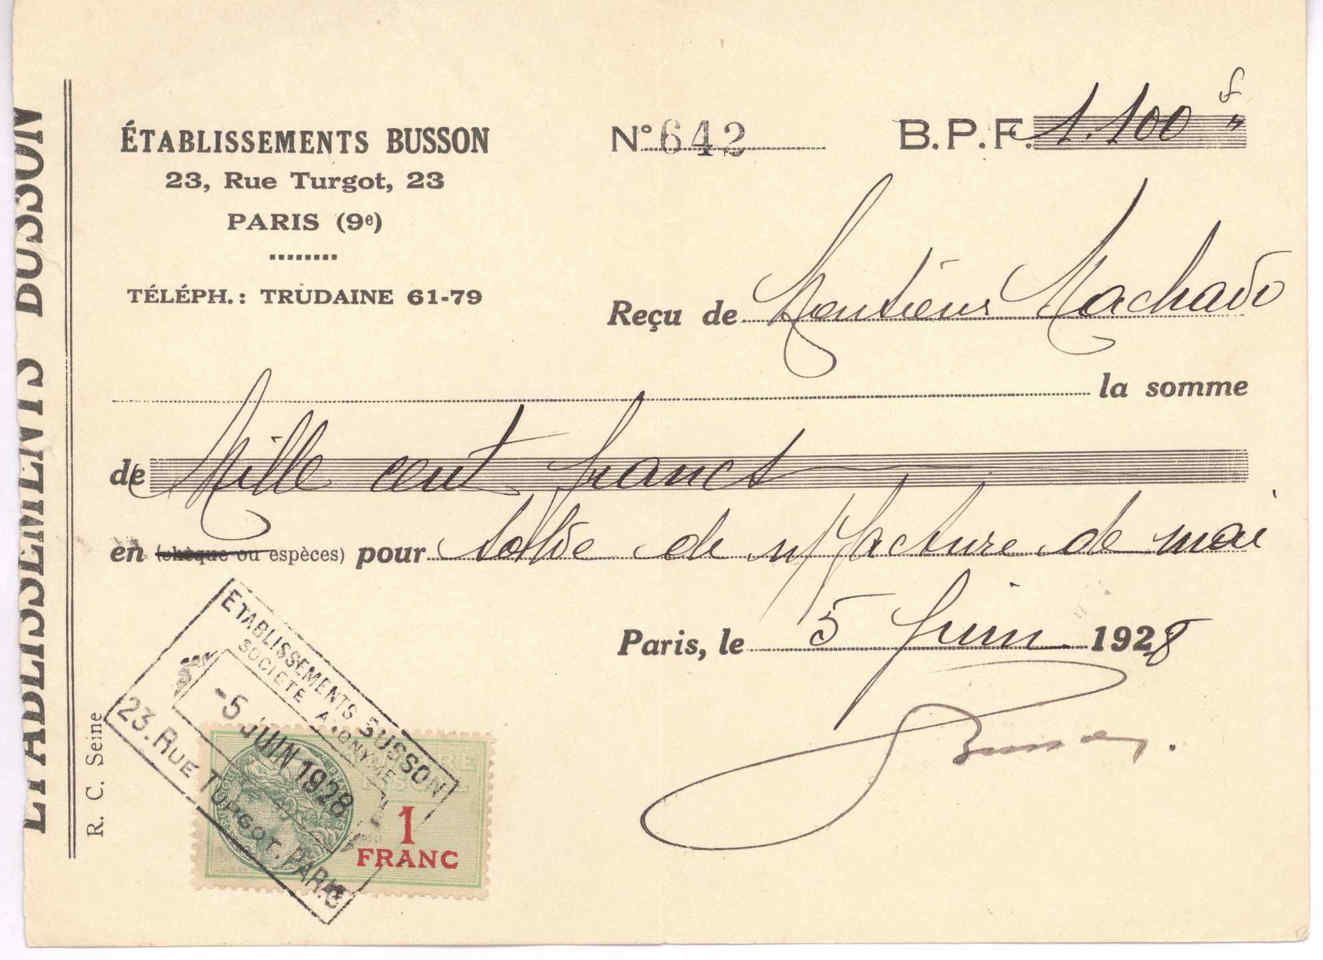 ÉTABLISSEMENTS BUSSON
ÉTABLISSEMENTS BUSSON
23, Rue Turgot, 23
PARIS (9e)
TÉLÉPH. : TRUDAINE 61-79
N° 642
B.P.F. 1.100 f "
Reçu de Monsieur Machado
la somme
de Mille cent francs
en (chèque ou espèces) pour solde de n/ facture de mai
Paris, le 5 Juin 1928
R. C. Seine
ETABLISSEMENTS BUSSON
SOCIÉTÉ ANONYME
-5 JUIN 1928
23. RUE TURGOT. PARIS
1
FRANC